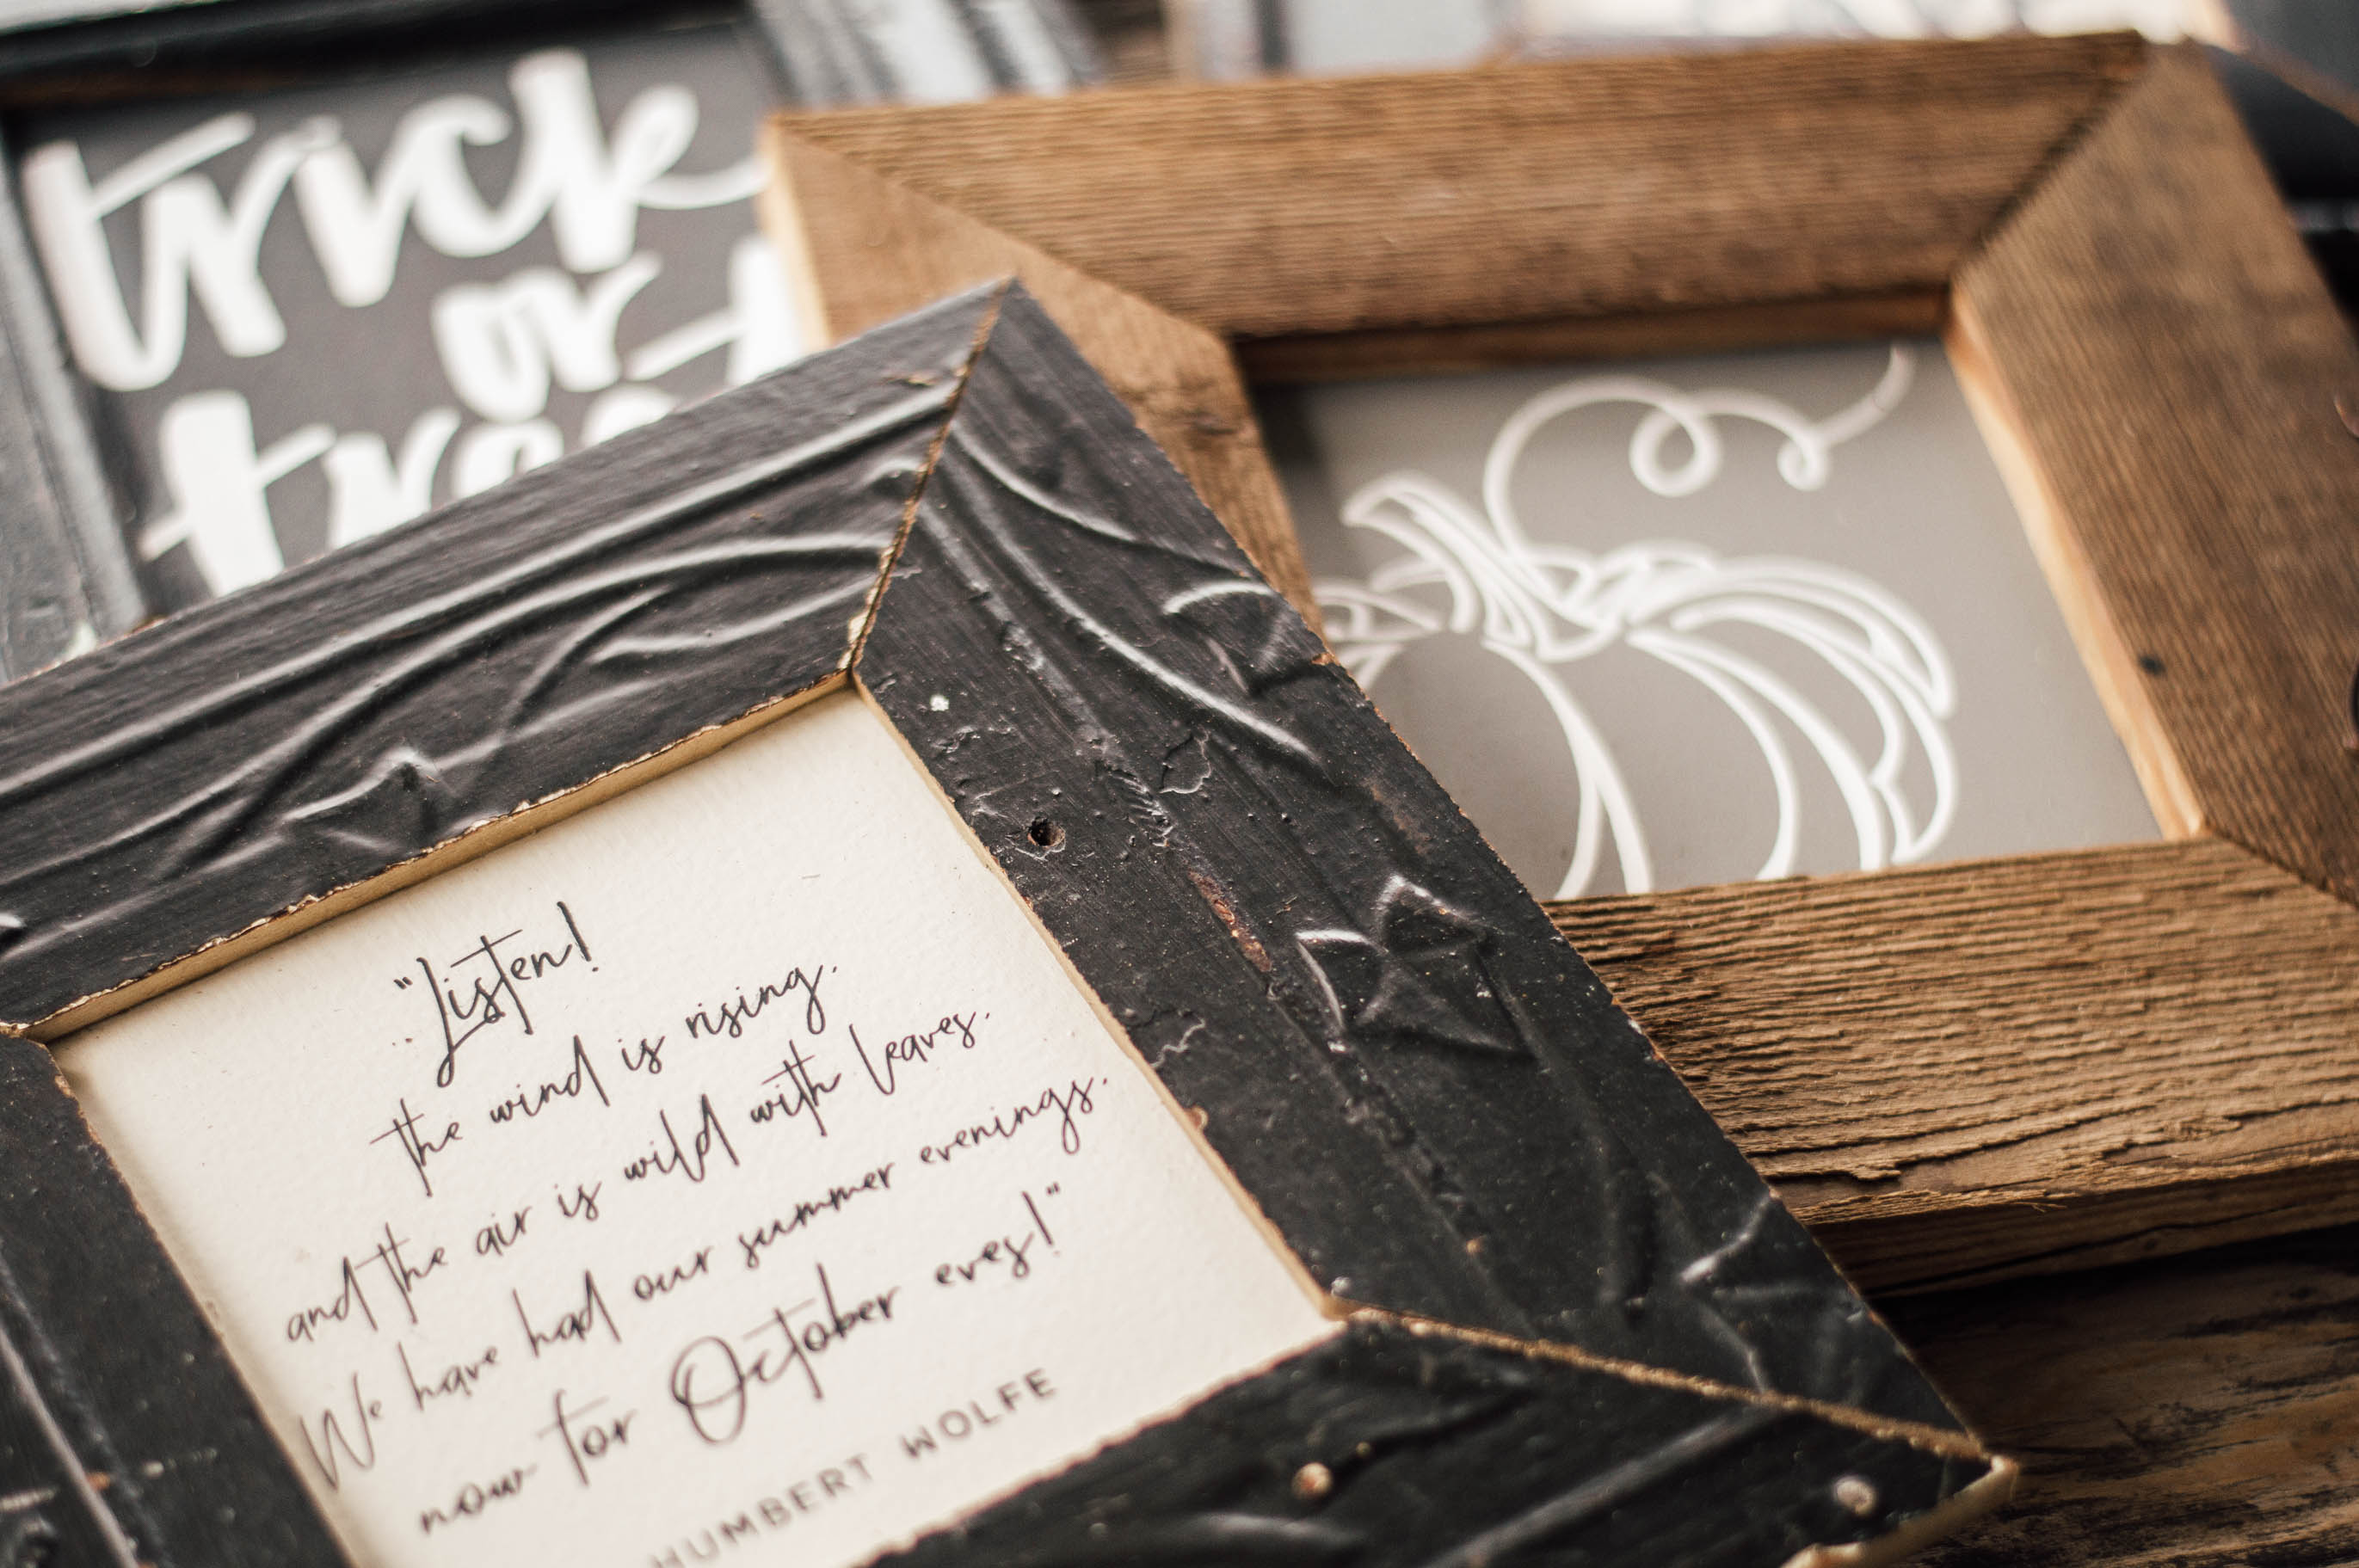 trick
or
"Listen!
the wind is rising.
and the air is wild with leaves.
We have had our summer evenings.
now for October eves!"
HUMBERT WOLFE